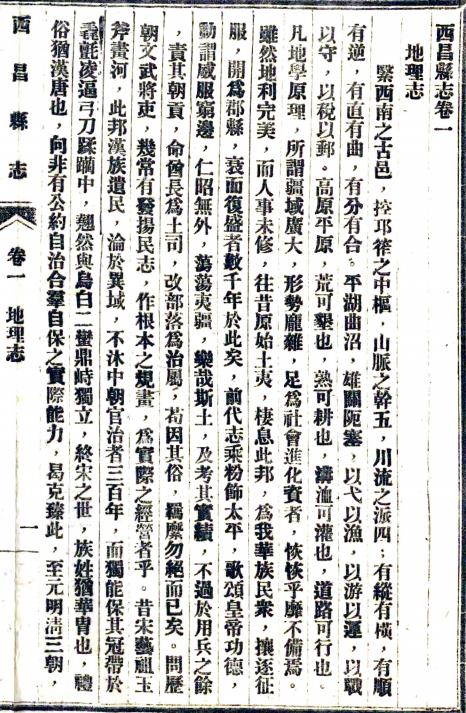 西昌縣志卷一
地理志
繄西南之古邑，控邛筰之中樞，山脈之幹五，川流之派四；有縱有橫，有順
有逆，有直有曲，有分有合。平湖曲沼，雄關阨塞，以弋以漁，以游以運，以戰
以守，以稅以郵。高原平原，荒可墾也，熟可耕也，溝洫可灌也，道路可行也。
凡地學原理，所謂疆域廣大，形勢龐雜，足爲社會進化資者，恢恢乎靡不備焉。
雖然地利完美，而人事未修，往昔原始土夷，棲息此邦，爲我華族民衆，攘逐征
服，開爲郡縣，衰而復盛者數千年於此矣，前代志乘粉飾太平，歌頌皇帝功德，
動謂威服窮邊，仁昭無外，蕩蕩夷疆，樂哉斯土，及考其實績，不過於用兵之餘
，責其朝貢，俞酋長爲土司，改部落爲治屬，苟因其俗，羈縻勿絕而已矣。問歷
朝文武將吏，幾常有發揚民志，作根本之規畫，爲實際之經營者乎。昔宋藝祖玉
斧畫河，此邦漢族遺民，淪於異域，不沐中朝官治者三百年，而獨能保其冠帶於
毳氈凌逼弓刀蹂躪中，翹然與烏白二蠻鼎峙獨立，終宋之世，族姓猶華胄也，禮
俗猶漢唐也，向非有公約自治合羣自保之實際能力，曷克臻此，至元明清三朝，
西昌縣志
卷一 地理志
一